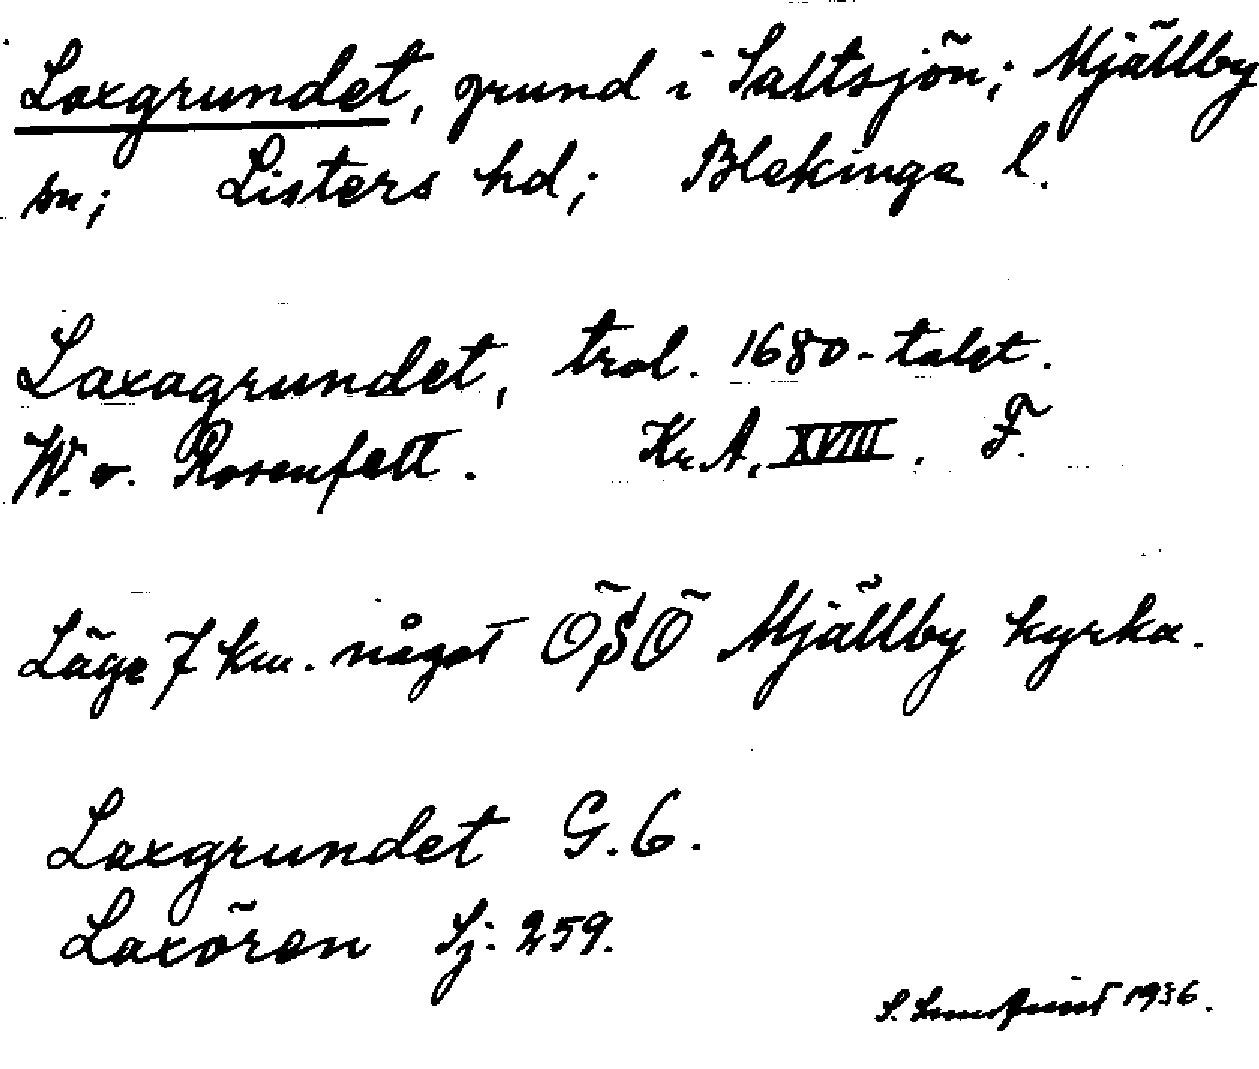 Laxgrundet, grund i Saltsjön; Mjällby
sn; Listers hd; Blekinge l.
Laxagrundet, trol. 1680-talet.
W. v. Rosenfelt. Kr.A. XVIII. F.
Läge 7 km. något ÖSÖ Mjällby kyrka.
Laxgrundet G.6.
Laxören Sj: 259.
S. 1936.